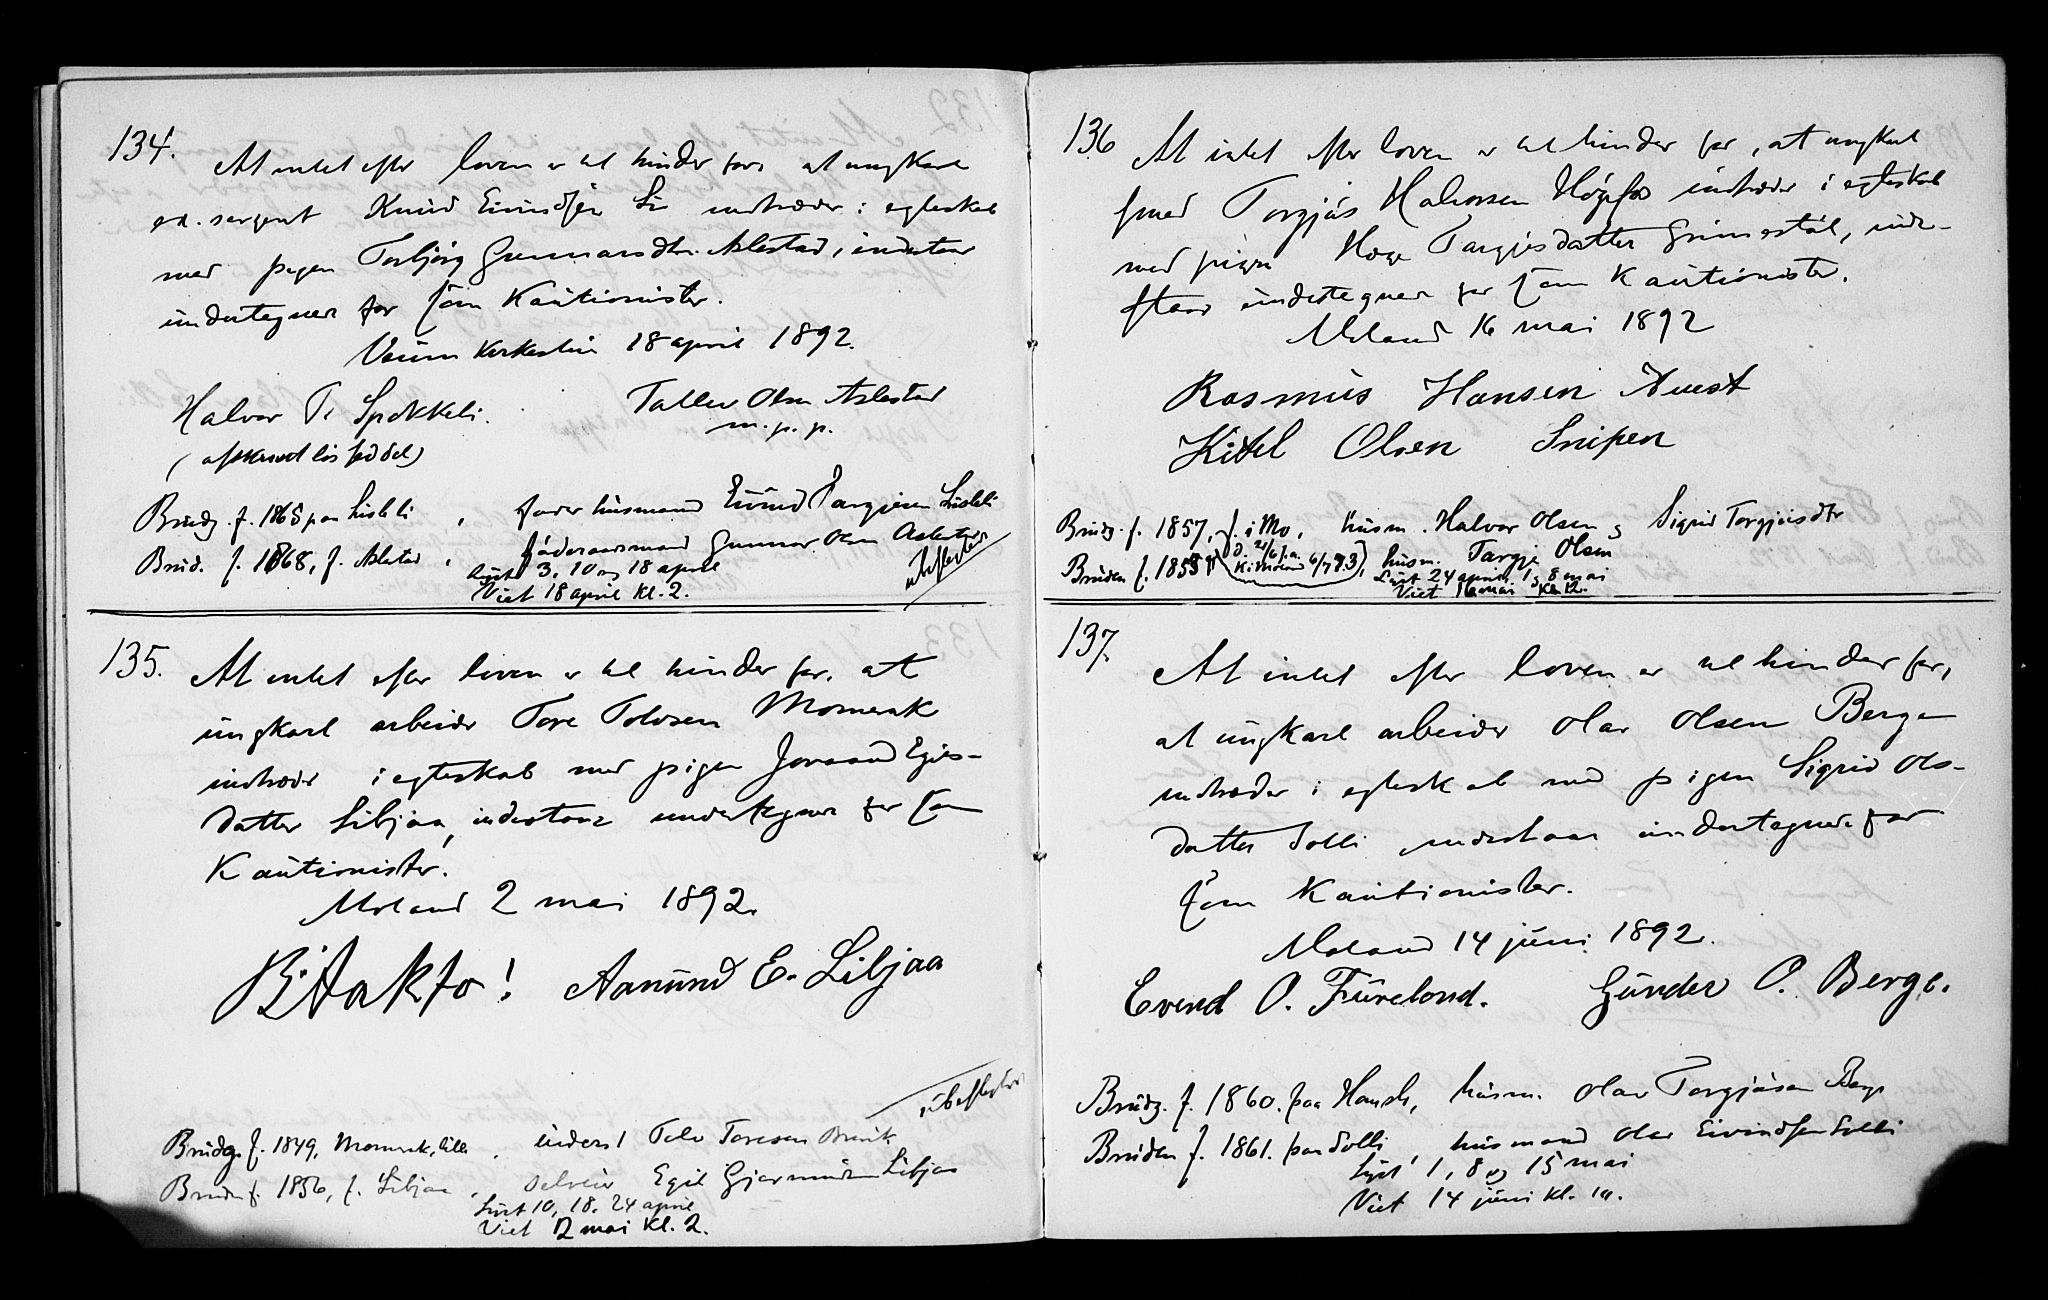 134.
At intet efter loven er til hinder for at ungkarl
ex. sergent Knud Eivindsen Li indtræder i egteskab
med pigen Torbjørg Gunnarsdtr. Aslestad, indestaar
undertegnede for som Kautionister.
Veum Kirkestue 18 april 1892.
Halvor T. Spokkeli. Tallev Olsen Aslestad
m. p. p.
Brudg. f. 1865 paa Lisleli, fader husmand Eivind Targiesen Lisleli
Brud. f. 1868, f. Aslestad, føderaadsmand Gunnar Olsen Aslestad
Lyst 3, 10 og 18 april
Viet 18 april kl. 2.
ubeflettede
135.
At intet efter loven er til hinder for, at
ungkarl arbeider Tore Tolvsen Momrak
indtræder i egteskab med pigen Joraand Egils-
datter Libjaa, indestaar undertegnede for som
Kautionister.
Moland 2 mai 1892.
B. Takto! Aamund E. Libjaa
Brudg. f. 1849, Momrak, lille, inderst Tolv Toresen
Bruden f. 1856, f. Libjaa, selveier Egil Gjermundsen Libjaa
Lyst 10, 18, 24 april
Viet 2 mai kl. 2.
136
At intet efter loven er til hinder for, at ungkarl
smed Torgjus Halvorsen indtræder i egteskab
med pigen Hæge Targjesdatter Grimestøl, inde-
staar undertegnede for som Kautionister.
Moland 16 mai 1892
Rasmus Hansen Kvest
Kitel Olsen Snipen
Brudg. f. 1857, f. i Mo, husm. Halvor Olsen og Sigrid Torgjusdtr
Bruden f. 1855, husm. Targje Olsen
Lyst 24 april, 1, 8 mai
Viet 16 mai kl. 12.
137.
At intet efter loven er til hinder for,
at ungkarl arbeider Olav Olsen Berge
indtræder i egteskab med pigen Sigrid Ols-
datter Solli indestaar undertegnede for
som Kautionister.
Moland 14 juni 1892.
Evend O. Fureland. Gunder O. Berge.
Brudg. f. 1860. paa Haugli, husm. Olav Torgjusen Berge
Bruden f. 1861. paa Solli, husmand Olav Eivindsen Solli
Lyst 1, 8 og 15 mai
Viet 14 juni kl.